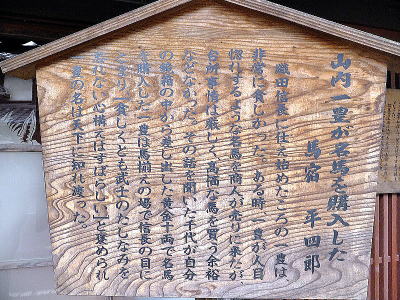 山内一豊が名馬を購入した
馬宿 平四郎
織田信長に仕え始めたころの一豊は、
非常に貧しかった。ある時、一豊が人目
惚れするような名馬を商人が売りに来たが、
台所事情は厳しく、高価な馬を買う余裕
などなかった。その話を聞いた千代が自分
の嫁資の中から差し出した黄金十両で名馬
を購入した一豊は馬揃えの場で信長の目に
とまり、「貧しくとも武士のたしなみを
忘れない心構えはすばらしい」と褒められ
一豊の名は天下に知れ渡った。